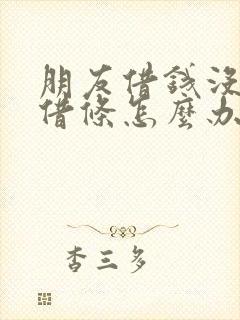 朋友借錢沒
借條怎麼办
杏三多